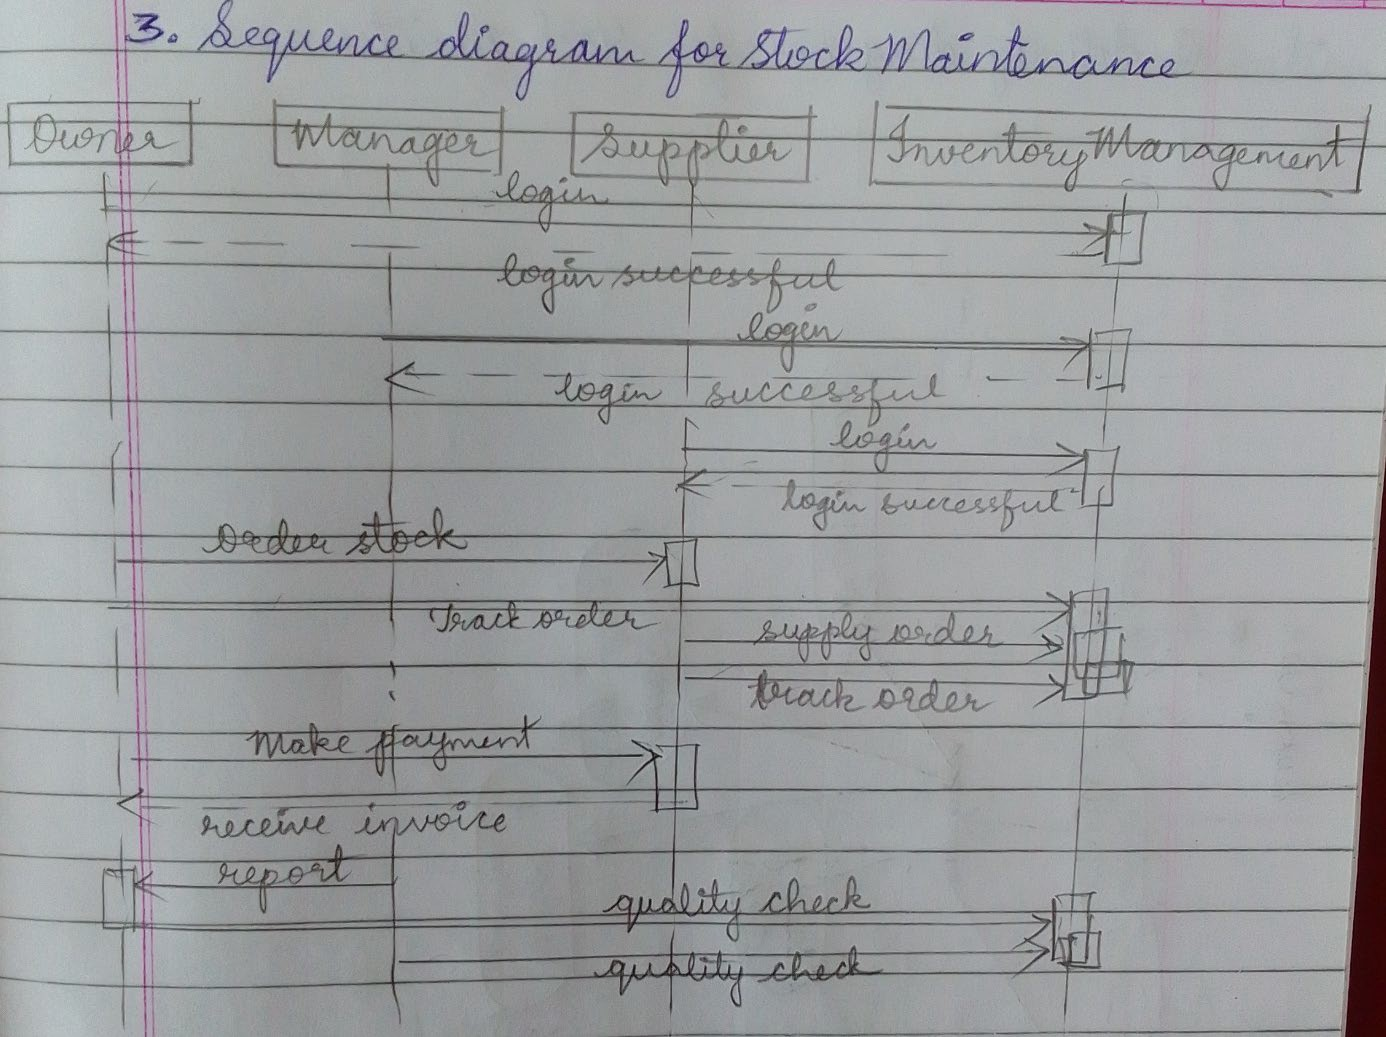 3. Sequence diagram for Stock Maintenance
Owner Manager Supplier Inventory Management
login
login successful
login
login successful
login
login successful
order stock
Track order
supply order
track order
Make payment
receive invoice
report
quality check
quality check